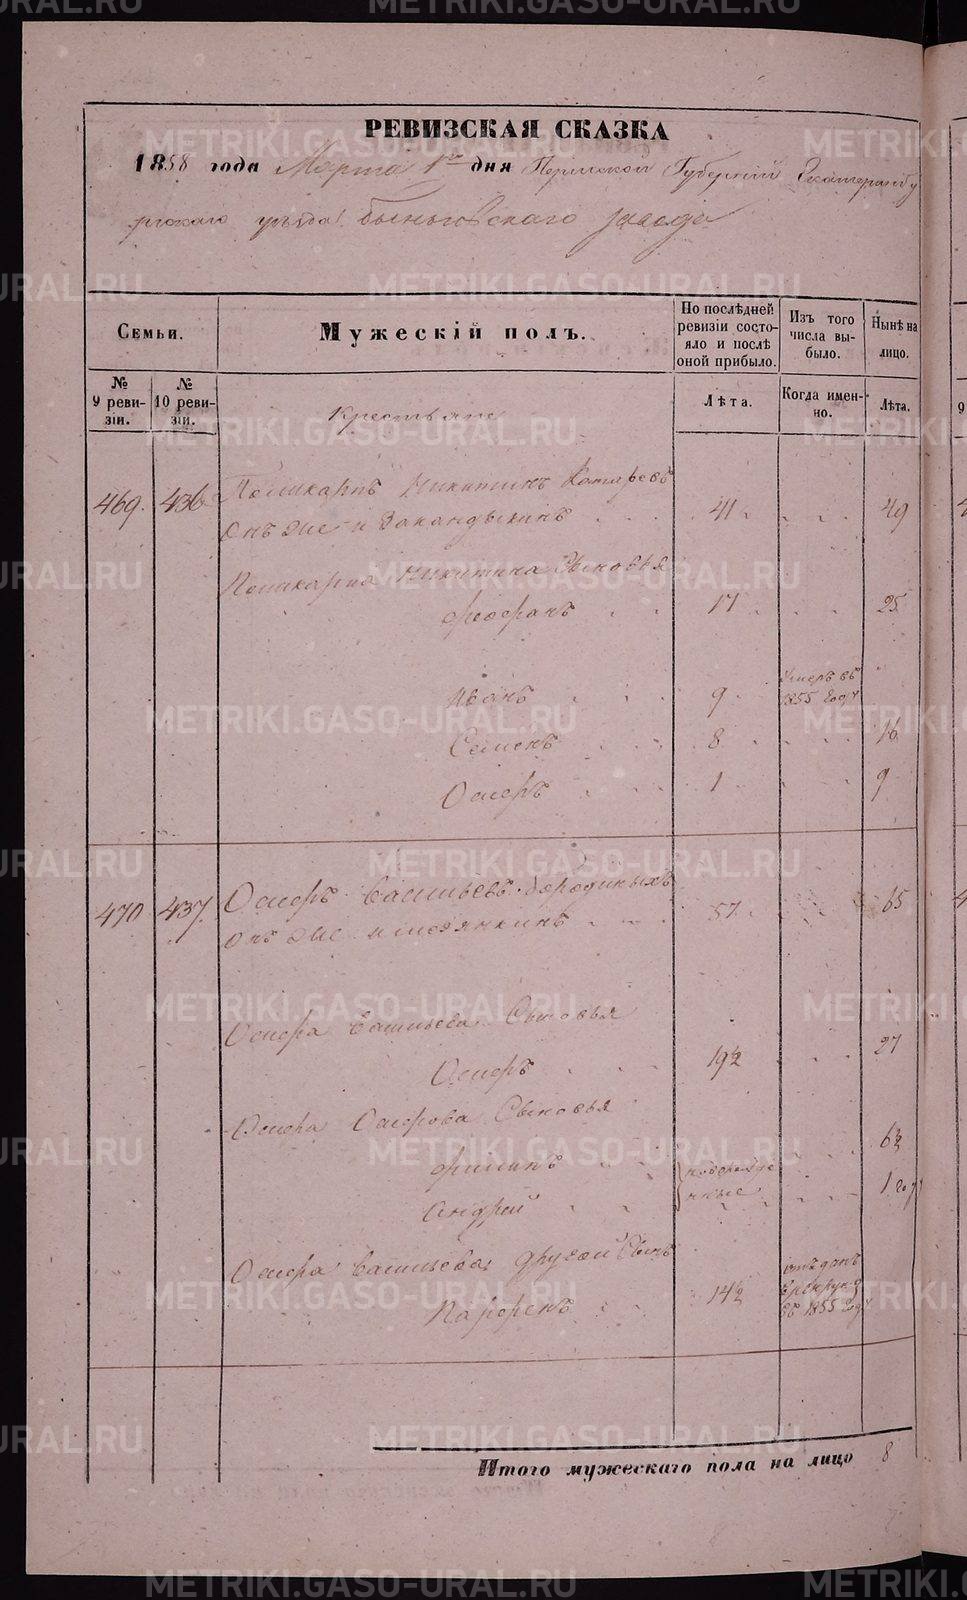 РЕВИЗСКАЯ СКАЗКА
1858 года Марта 1го дня Пермской Губерніи Екатеринбу
ргскаго уѣзда Быньговскаго завода
Семьи.
Мужескій полъ.
По послѣдней ревизіи состояло и послѣ оной прибыло.
Изъ того числа выбыло.
Нынѣ на лицо.
№ 9 ревизіи.
№ 10 ревизіи.
Лѣта.
Когда именно.
Лѣта.
Крестьяне
469. 436 Поликарпъ Никитинъ
Онъ же и 41 49
Поликарпа Никитина Сыновья
Феофанъ 17 25
Иванъ 9 Умеръ въ 1855 году
Семенъ 8 16
Осипъ 1 9
470 437 Осипъ Васильевъ Бородиныхъ
Онъ же 57 65
Осипа Васильева Сыновья
Осипъ 19½ 27
Осипа Осипова Сыновья
Филипъ 6½
Андрей 1 году
Осипа Васильева другой Сынъ
Парфенъ 14½ отданъ в рекруты въ 1855 году
Итого мужескаго пола на лицо 8
METRIKI.GASO-URAL.RU